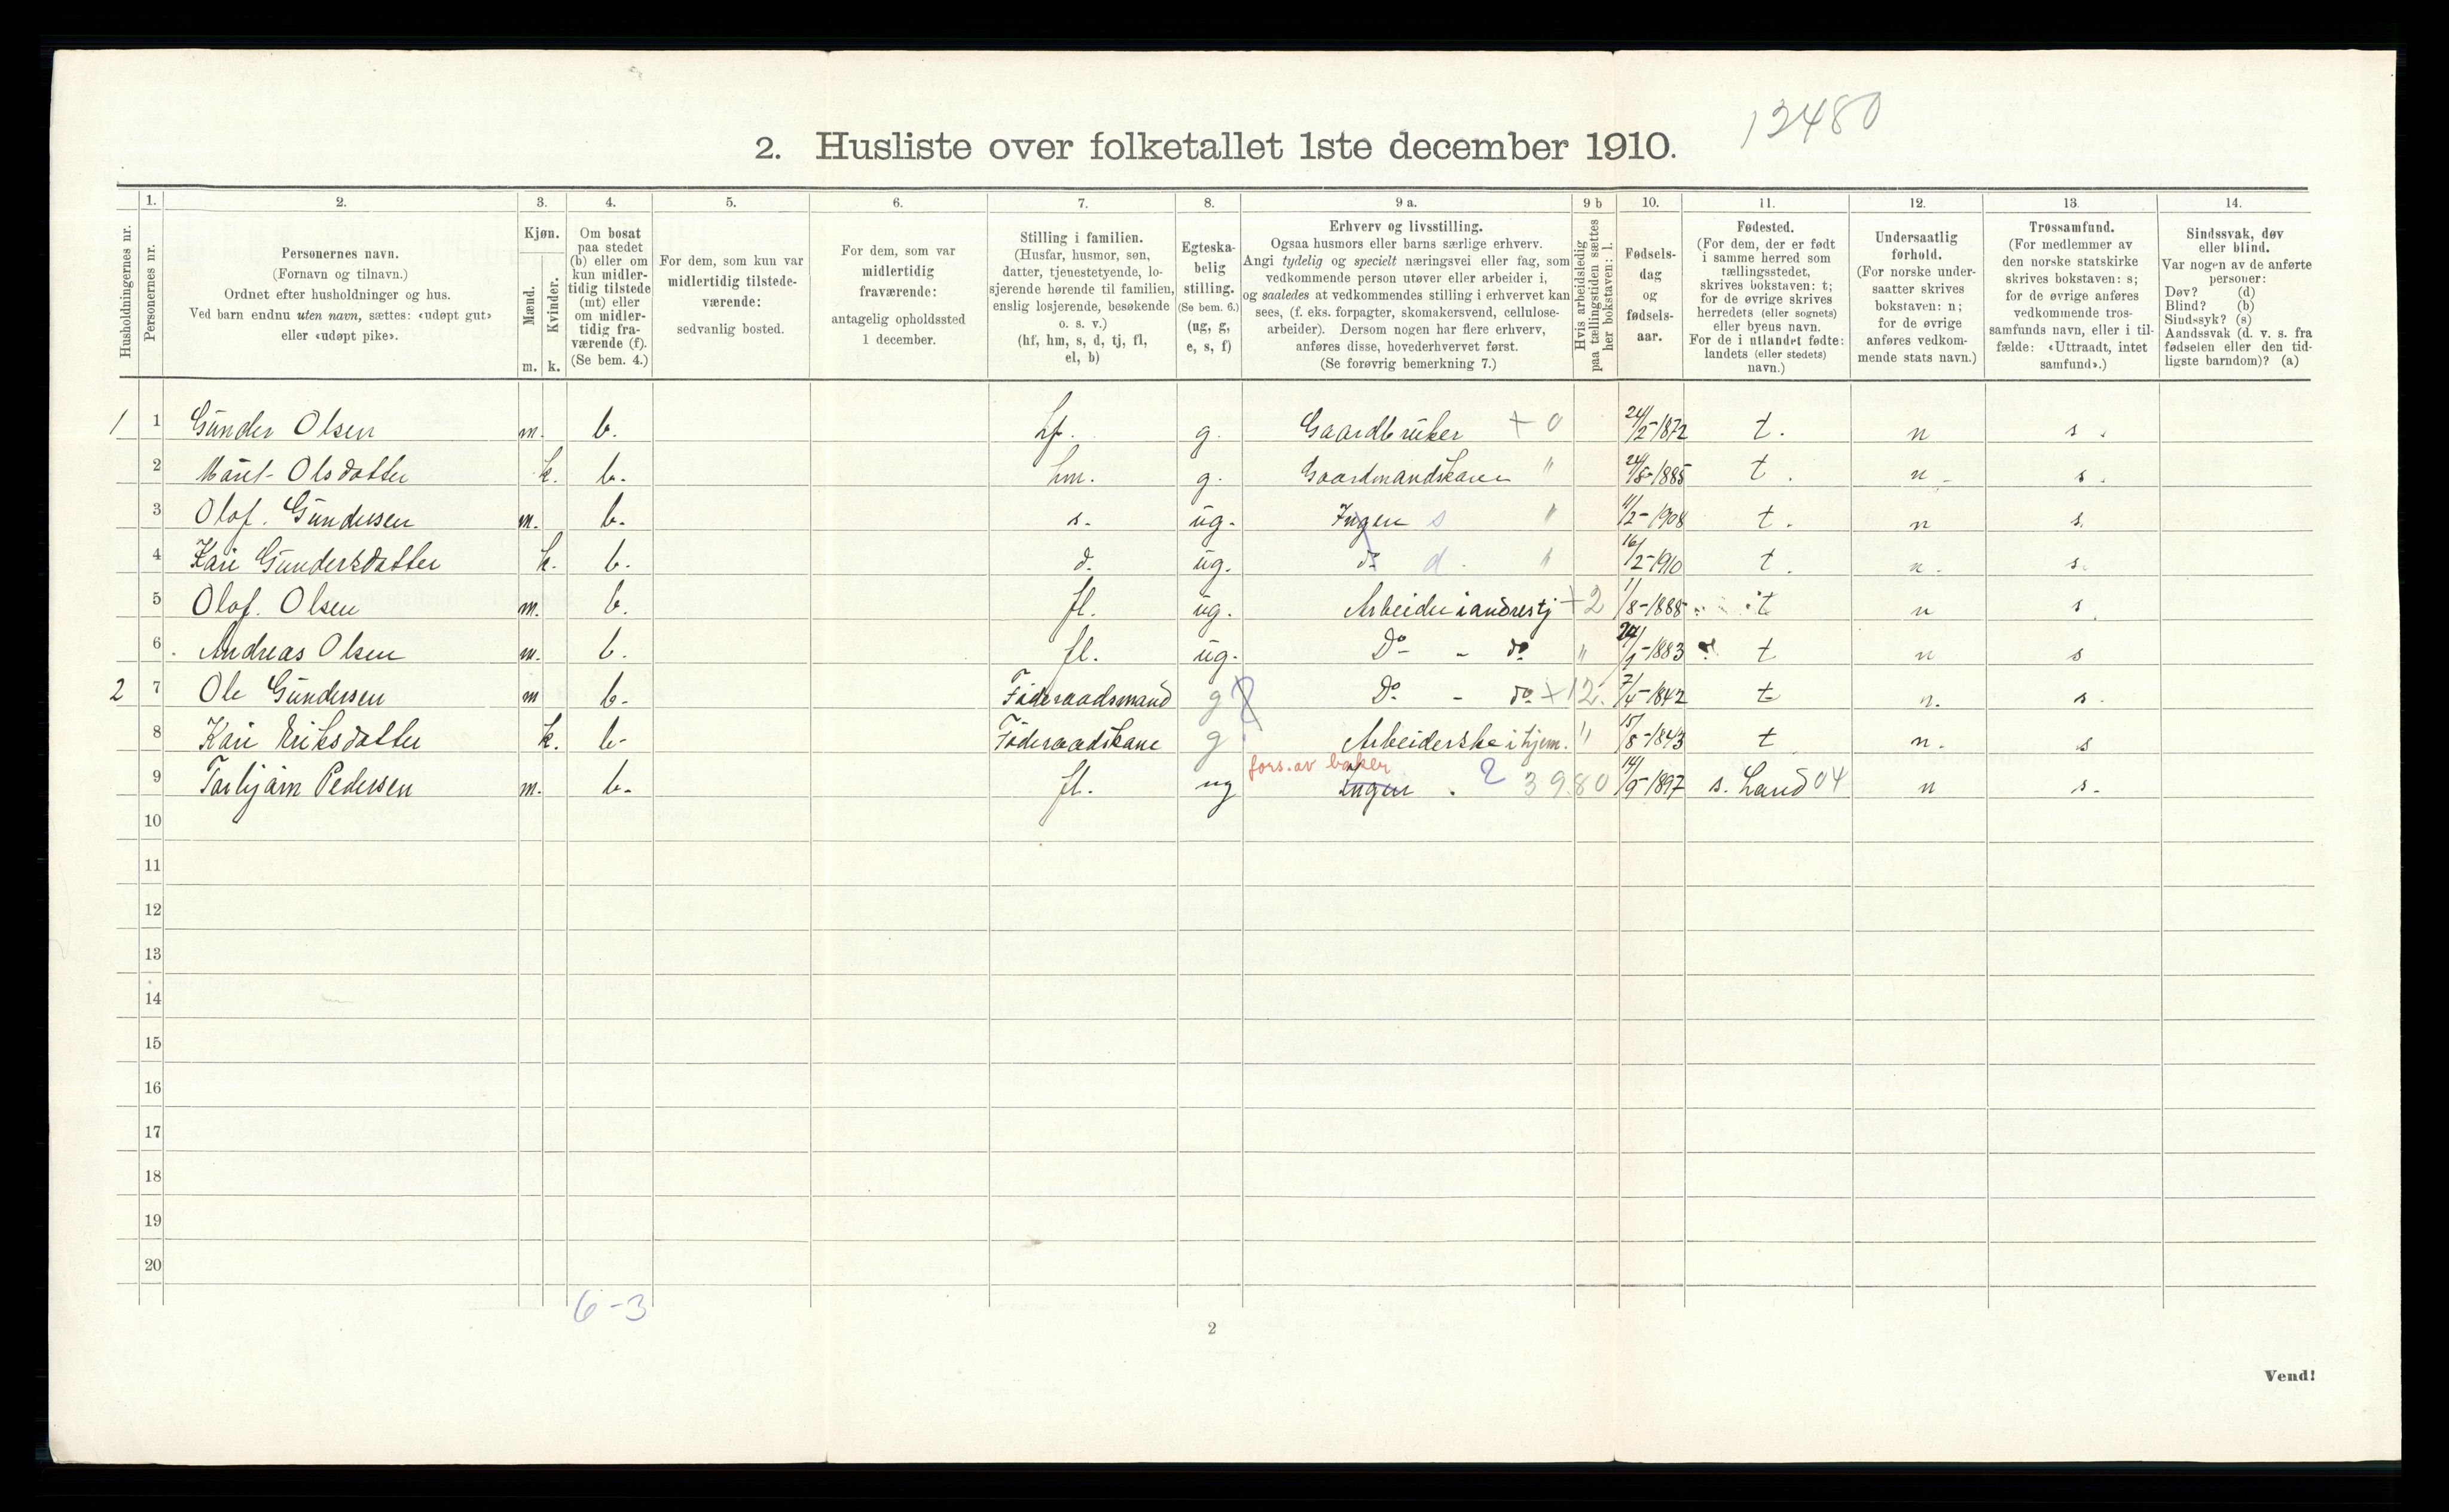 12480
2. Husliste over folketallet 1ste december 1910.
1. 2. 3. 4. 5. 6. 7. 8. 9 a. 9 b 10. 11. 12. 13. 14.
Husholdningernes nr.
Personernes nr.
Personernes navn.
(Fornavn og tilnavn.)
Ordnet efter husholdninger og hus.
Ved barn endnu uten navn, sættes: «udøpt gut»
eller «udøpt pike».
Kjøn.
Mænd.
Kvinder.
m. k.
Om bosat
paa stedet
(b) eller om
kun midler-
tidig tilstede
(mt) eller
om midler-
tidig fra-
værende (f).
(Se bem. 4.)
For dem, som kun var
midlertidig tilstede-
værende:
sedvanlig bosted.
For dem, som var
midlertidig
fraværende:
antagelig opholdssted
1 december.
Stilling i familien.
(Husfar, husmor, søn,
datter, tjenestetyende, lo-
sjerende hørende til familien,
enslig losjerende, besøkende
o. s. v.)
(hf, hm, s, d, tj, fl,
el, b)
Egteska-
belig
stilling.
(Se bem. 6.)
(ug, g,
e, s, f)
Erhverv og livsstilling.
Ogsaa husmors eller barns særlige erhverv.
Angi tydelig og specielt næringsvei eller fag, som
vedkommende person utøver eller arbeider i,
og saaledes at vedkommendes stilling i erhvervet kan
sees, (f. eks. forpagter, skomakersvend, cellulose-
arbeider). Dersom nogen har flere erhverv,
anføres disse, hovederhvervet først.
(Se forøvrig bemerkning 7.)
Hvis arbeidsledig
paa tællingstiden sættes
her bokstaven: l.
Fødsels-
dag
og
fødsels-
aar.
Fødested.
(For dem, der er født
i samme herred som
tællingsstedet,
skrives bokstaven: t;
for de øvrige skrives
herredets (eller sognets)
eller byens navn.
For de i utlandet fødte:
landets (eller stedets)
navn.)
Undersaatlig
forhold.
(For norske under-
saatter skrives
bokstaven: n;
for de øvrige
anføres vedkom-
mende stats navn.)
Trossamfund.
(For medlemmer av
den norske statskirke
skrives bokstaven: s;
for de øvrige anføres
vedkommende tros-
samfunds navn, eller i til-
fælde: «Uttraadt, intet
samfund».)
Sindssvak, døv
eller blind.
Var nogen av de anførte
personer:
Døv? (d)
Blind? (b)
Sindssyk? (s)
Aandssvak (d. v. s. fra
fødselen eller den tid-
ligste barndom)? (a)
1 1 Gunder Olsen m. b. hf. g. Gaardbruker + 0 24/5-1872 t. n s.
2 Marit Olsdatter k. b. hm. g. Gaardmandskone " 24/8-1885 t. n. s.
3 Olof. Gundersen m. b. s. ug. Ingen s " 11/2-1908 t. n s.
4 Kari Gundersdatter k. b. d. ug. do d. " 16/2-1910 t. n. s.
5 Olof. Olsen m. b. fl. ug. Arbeider i andres tj +2 1/8-1888 t n s
6 Andreas Olsen m. b. fl. ug. Do - do " /1-1883 t n s
2 7 Ole Gundersen m b. Föderaadsmand g Do - do +12. 7/4-1842 t n. s.
8 Kari Eriksdatter k. b. Föderaadskone g. Arbeiderske i hjem. " 15/8-1843 t n. s
fors. av baker
9 Torbjörn Pedersen m. b. fl. ug Ingen . 2 3980 14/9-1897 s. Land 04 n s.
10
11
12
13
14
15
16
17
18
19
20
6-3
2
Vend!